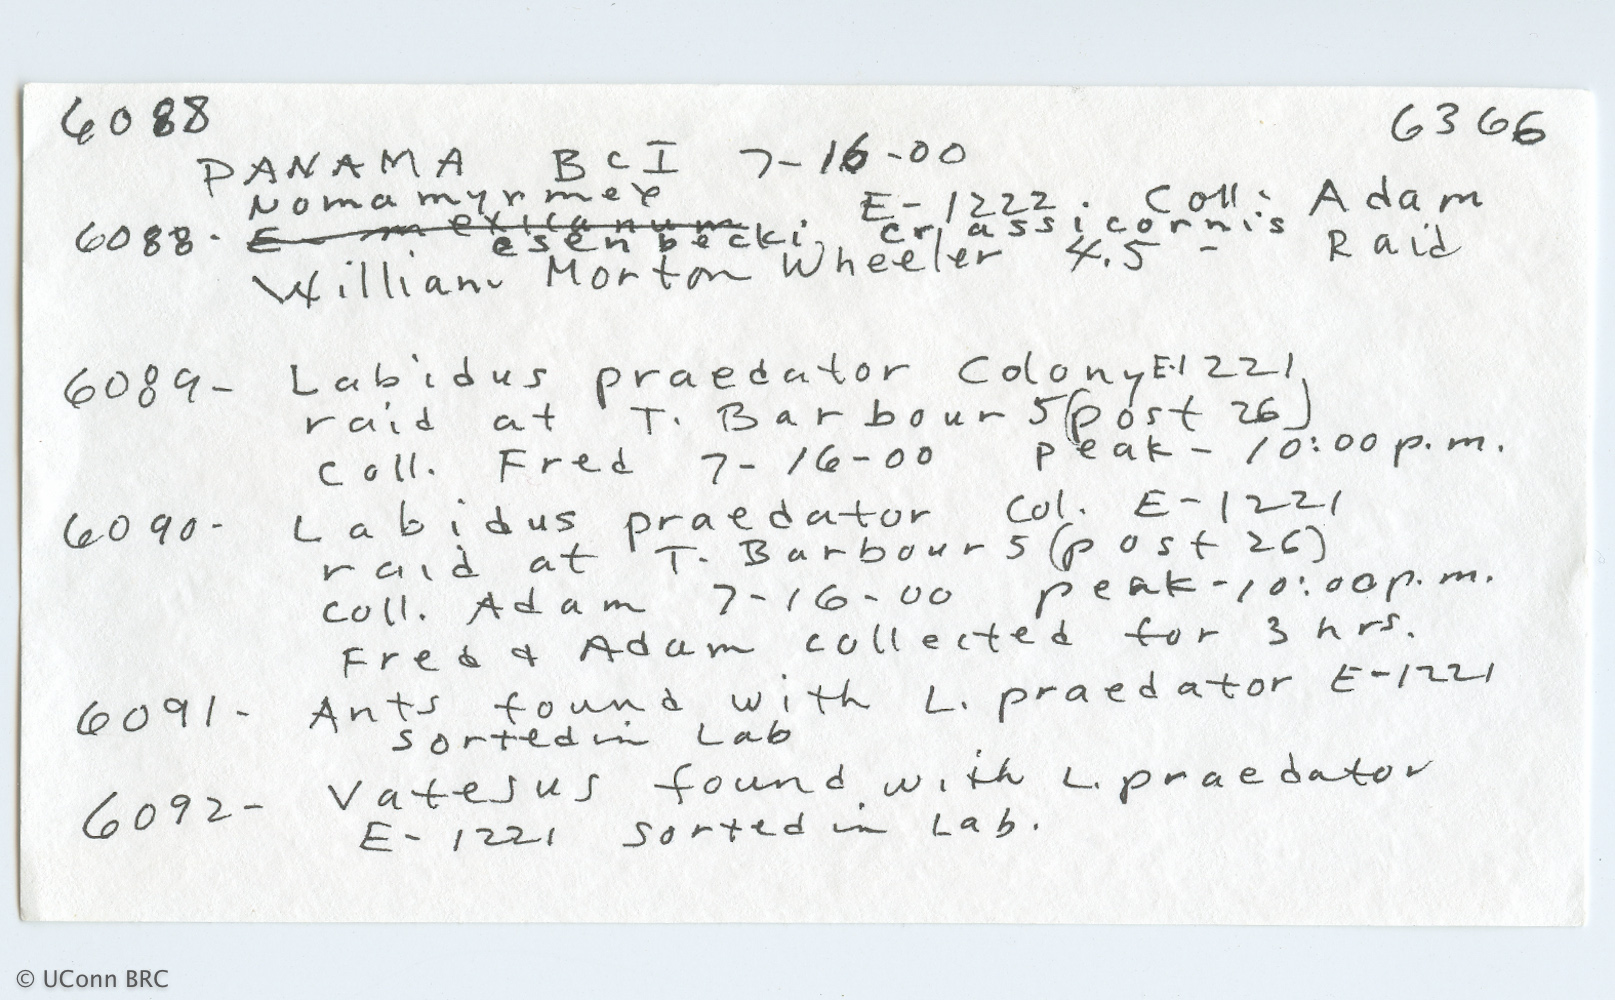 6088 6366
PANAMA BCI 7-16-00
Nomamyrmex E-1222. Coll: Adam
6088. E. mexicanum esenbecki crassicornis
William Morton Wheeler 4.5 - Raid
6089- Labidus praedator Colony E-1221,
raid at T. Barbour 5 (post 26)
Coll. Fred 7-16-00 peak- 10:00 p.m.
6090- Labidus praedator Col. E-1221
raid at T. Barbour 5 (post 26)
Coll. Adam 7-16-00 peak-10:00p.m.
Fred & Adam collected for 3 hrs.
6091- Ants found with L. praedator E-1221
sorted in Lab
6092- Vatesus found with L. praedator
E-1221 sorted in Lab.
© UConn BRC